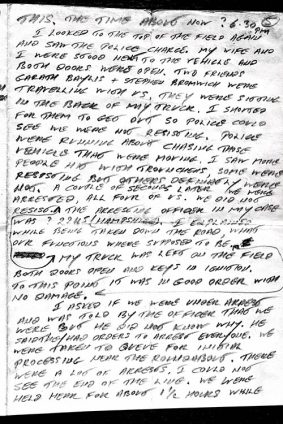 THIS. THE TIME ABOUT NOW ? 6.30pm
I LOOKED TO THE TOP OF THE FIELD AGAIN
AND SAW THE POLICE CHARGE. MY WIFE AND
I WERE STOOD NEXT TO THE VEHICLE AND
BOTH DOORS WERE OPEN. TWO FRIENDS
GARATH BAYLIS + STEPHEN BROMWICH WERE
TRAVELLING WITH US. THEY WERE SITTING
IN THE BACK OF MY TRUCK. I SHOUTED
FOR THEM TO GET OUT SO POLICE COULD
SEE WE WERE NOT RESISTING. POLICE
WERE RUNNING ABOUT CHASING THOSE
VEHICLE THAT WERE MOVING. I SAW MORE
PEOPLE HIT WITH TRONCHEONS, SOME WERE
RESISTING BUT OTHERS DEFINATLY WERE
NOT. A COUPLE OF SECONDS LATER WE WERE
ARRESTED, ALL FOUR OF US. WE DID NOT
RESIST. THE ARRESTING OFFICER IN MY CASE
WAS I EXPLAINED
WHILE BEING TAKEN DOWN THE ROAD, WHAT
OUR FUNCTIONS WHERE SUPPOSED TO BE.
MY TRUCK WAS LEFT ON THE FIELD
BOTH DOORS OPEN AND KEYS IN IGNITION.
TO THIS POINT IT WAS IN GOOD ORDER WITH
NO DAMAGE.
I ASKED IF WE WERE UNDER ARREST
AND WAS TOLD BY THE OFFICER THAT WE
WERE BUT HE DID NOT KNOW WHY. HE
SAID THEY HAD ORDERS TO ARREST EVERYONE. WE
WERE TAKEN TO QUEUE FOR INITIAL
PROCESSING NEAR THE ROUNDABOUT. THERE
WERE A LOT OF ARRESTS. I COULD NOT
SEE THE END OF THE LINE. WE WERE
HELD HEAR FOR ABOUT 1½ HOURS WHILE